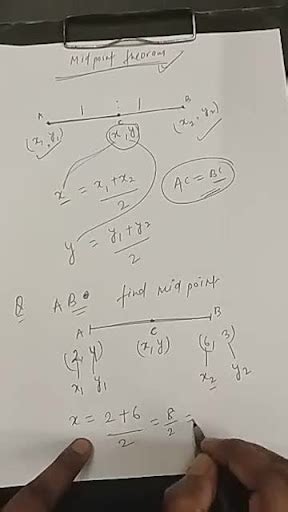 Midpoint theorem
A 1 : 1 B
C
(x₁, y₁) (x, y) (x₂, y₂)
x = x₁ + x₂ / 2
AC = BC
y = y₁ + y₂ / 2
Q AB find midpoint
A C B
(2, 4) (x, y) (6, 3)
x₁ y₁ x₂ y₂
x = 2 + 6 / 2 = 8 / 2 =